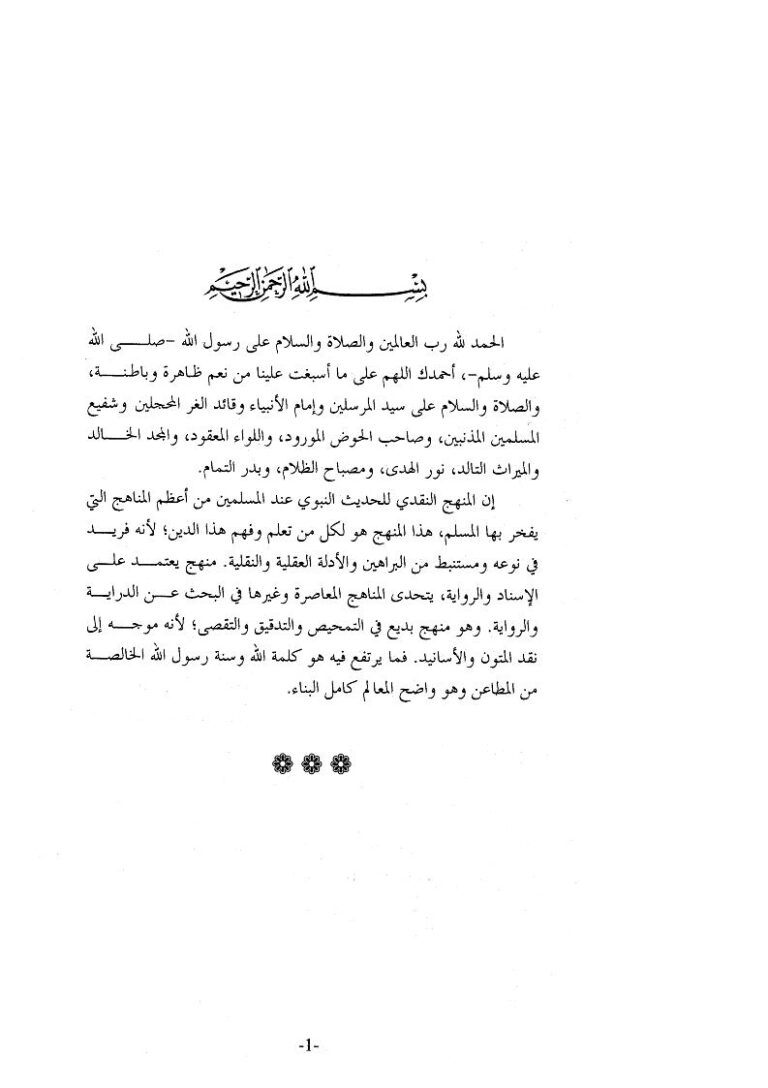 بسم الله الرحمن الرحيم
الحمد لله رب العالمين والصلاة والسلام على رسول الله -صلى الله
عليه وسلم-، أحمدك اللهم على ما أسبغت علينا من نعم ظاهرة وباطنة،
والصلاة والسلام على سيد المرسلين وإمام الأنبياء وقائد الغر المحجلين وشفيع
المسلمين المذنبين، وصاحب الحوض المورود، واللواء المعقود، والمجد الخالد
والميراث التالد، نور الهدى، ومصباح الظلام، وبدر التمام.
إن المنهج النقدي للحديث النبوي عند المسلمين من أعظم المناهج التي
يفخر بها المسلم، هذا المنهج هو لكل من تعلم وفهم هذا الدين؛ لأنه فريد
في نوعه ومستنبط من البراهين والأدلة العقلية والنقلية. منهج يعتمد على
الإسناد والرواية، يتحدى المناهج المعاصرة وغيرها في البحث عن الدراية
والرواية. وهو منهج بديع في التمحيص والتدقيق والتقصى؛ لأنه موجه إلى
نقد المتون والأسانيد. فما يرتفع فيه هو كلمة الله وسنة رسول الله الخالصة
من المطاعن وهو واضح المعالم كامل البناء.
-1-